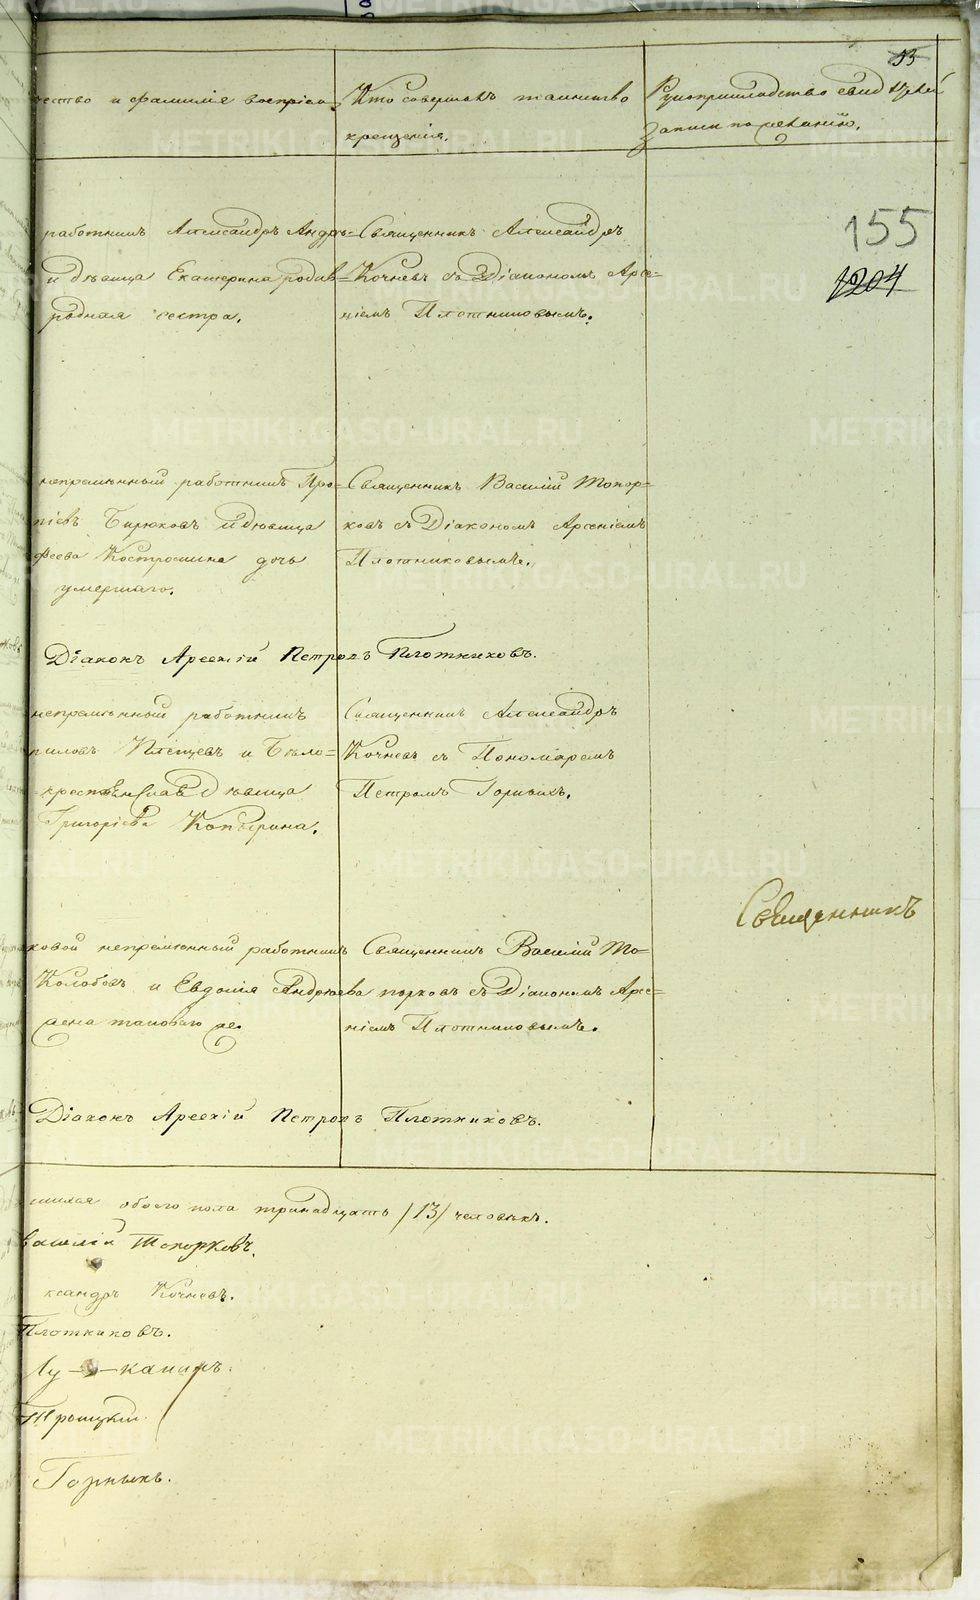 53
ество и фамилія воспріем
Кто совершалъ таинство
крещенія.
Рукоприкладство свидѣтелей
записи по желанію.
155
1204
работникъ Александръ Андрѣ=
и дѣвица Екатерина родив=
родная сестра.
Священникъ Александръ
Кочневъ съ Діакономъ Арсе=
ніемъ Плотниковымъ.
непремѣнный работникъ Про=
піевъ Бирюковъ и дѣвица
феева Костромина дочь
умершаго.
Священникъ Василій Топор=
ковъ съ Діакономъ Арсеніемъ
Плотниковымъ.
Діаконъ Арсеній Петровъ Плотниковъ.
непремѣнный работникъ
пиловъ и Бѣло=
дѣвица
Григоріева Копырина.
Священникъ Александръ
Кочневъ съ Пономаремъ
Петромъ Горныхъ.
ковой непремѣнный работникъ
Колобовъ и Евдокія Андреева
жена таковаго же
Священникъ Василій То=
порковъ съ Діакономъ Арсе=
ніемъ Плотниковымъ.
Священникъ
Діаконъ Арсеній Петровъ Плотниковъ.
обоего пола тринадцать /13/ человѣкъ.
Василій Топорковъ.
ксандръ Кочневъ.
Плотниковъ.
Лу-канинъ.
Троицкій
Горныхъ.
METRIKI.GASO-URAL.RU